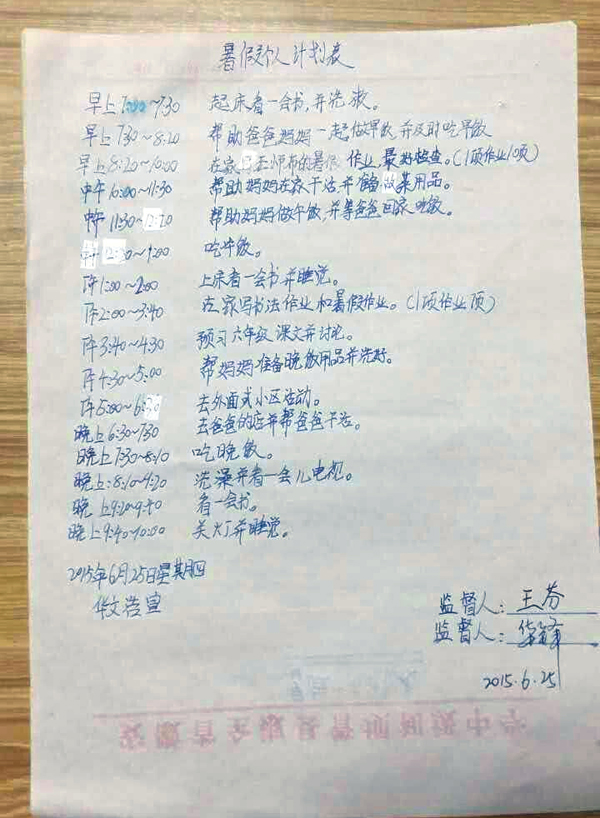 暑假个人计划表
早上7:00~7:30 起床看一会书,并洗漱。
早上7:30~8:20 帮助爸爸妈妈一起做早饭,并及时吃早饭
早上8:20~10:00 在家 老师布的暑假作业,最好检查。(1项作业10页)
中午10:00~11:30 帮助妈妈在家干活,并准备做菜用品。
中午11:30~12:20 帮助妈妈做午饭,并等爸爸回家吃饭。
~1:00 吃午饭。
下午1:00~2:00 上床看一会书并睡觉。
下午2:00~3:40 在家写书法作业和暑假作业。(1项作业 页)
下午3:40~4:30 预习六年级课文并讨论。
下午4:30~5:00 帮妈妈准备晚饭用品并洗好。
下午5:00~6:30 去外面或小区活动。
晚上6:30~7:30 去爸爸的店并帮爸爸干活。
晚上7:30~8:10 吃晚饭。
晚上:8:10~9:20 洗澡并看一会儿电视。
晚上9:20~9:40 看一会书。
晚上9:40~10:00 关灯并睡觉。
2015年6月25日星期四
华文浩宣
监督人:王芬
监督人:华
2015.6.25